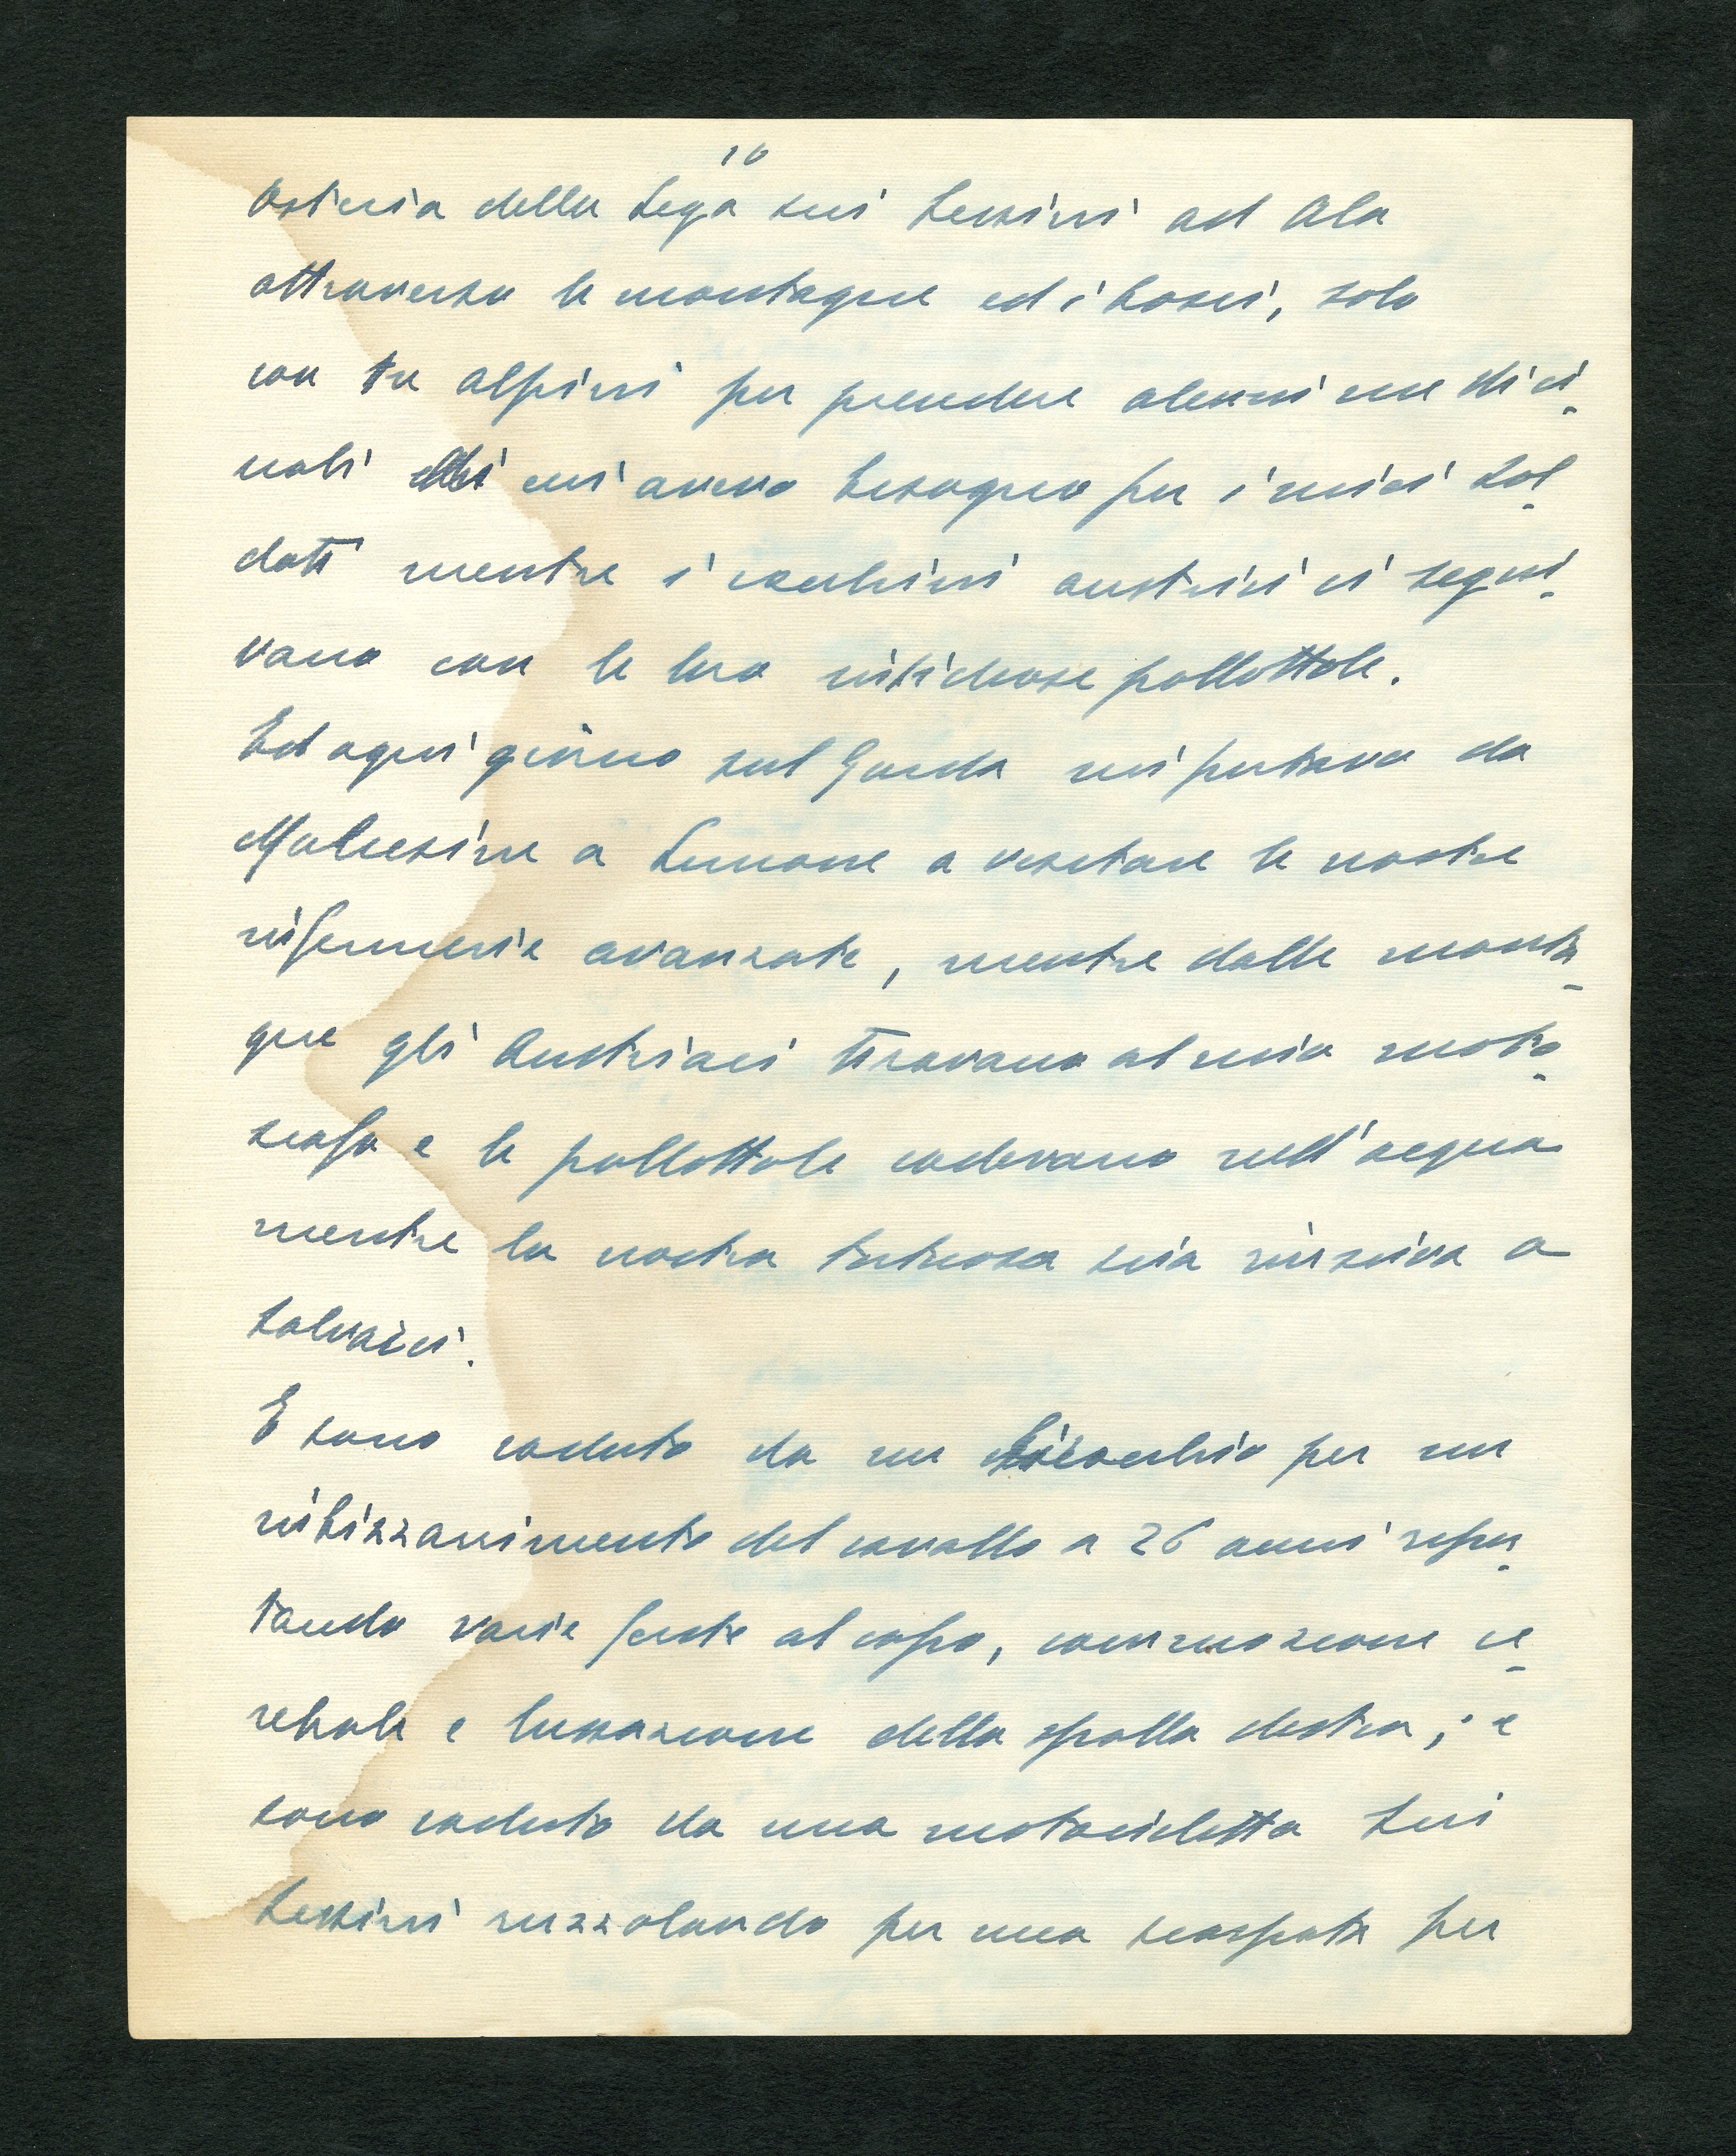 10
Osteria della Lega sui Lessini ad Ala
attraverso le montagne ed i boschi, solo
con tre alpini per prendere alcuni medici-
nali di cui avevo bisogno per i miei sol-
dati mentre i cecchini austriaci ci segui-
vano con le loro insidiose pallottole.
Ed ogni giorno sul Garda mi portavo da
Malcesine a Limone a visitare le nostre
infermerie avanzate, mentre dalle monta-
gne gli Austriaci tiravano al mio moto-
scafo e le pallottole cadevano nell'acqua
mentre la nostra tortuosa scia riusciva a
salvarci.
E sono caduto da un biroccino per un
imbizzarrimento del cavallo a 26 anni ripor-
tando varie ferite al capo, commozione ce-
rebrale e lussazione della spalla destra; e
sono caduto da una motocicletta sui
Lessini ruzzolando per una scarpata per